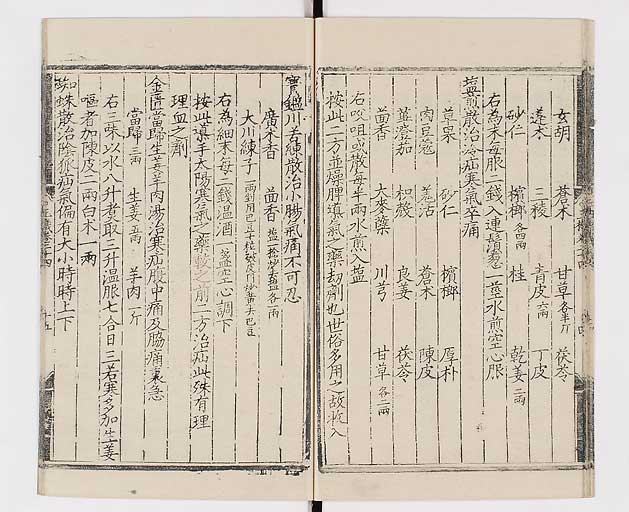 玄胡 蒼朮 甘草各半斤 茯苓
蓬朮 三稜 青皮六兩 丁皮
砂仁 檳榔各四兩 桂 乾姜二兩
右為末每服二錢入連鬚葱一莖水煎空心服
盬煎散治冷疝寒氣卒痛
草果 砂仁 檳榔 厚朴
肉豆蔻 羗活 蒼朮 陳皮
蓽澄茄 枳殼 良姜 茯苓
茴香 大麥蘗 川芎 甘草各二兩
右㕮咀或散每半兩水煎入盬
按此二方並燥脾滇氣之藥刼劑也世俗多用之故收入
寶鑑川苦練散治小腸氣痛不可忍
廣木香 茴香盬一捻炒去盬各一兩
大川練子一兩剉用巴豆十粒炒黃去巴豆
右為細末每二錢溫酒一盞空心調下
按此滇手太陽寒氣之藥較之前二方治疝此殊有理
理血之劑
金匱當歸生姜羊肉湯治寒疝腹中痛及脇痛裏急
當歸三兩 生姜五兩 羊肉一斤
右三味以水八升煮取三升溫服七合日三若寒多加生姜
嘔者加陳皮二兩白朮一兩
蜘蛛散治陰狐疝氣偏有大小時時上下